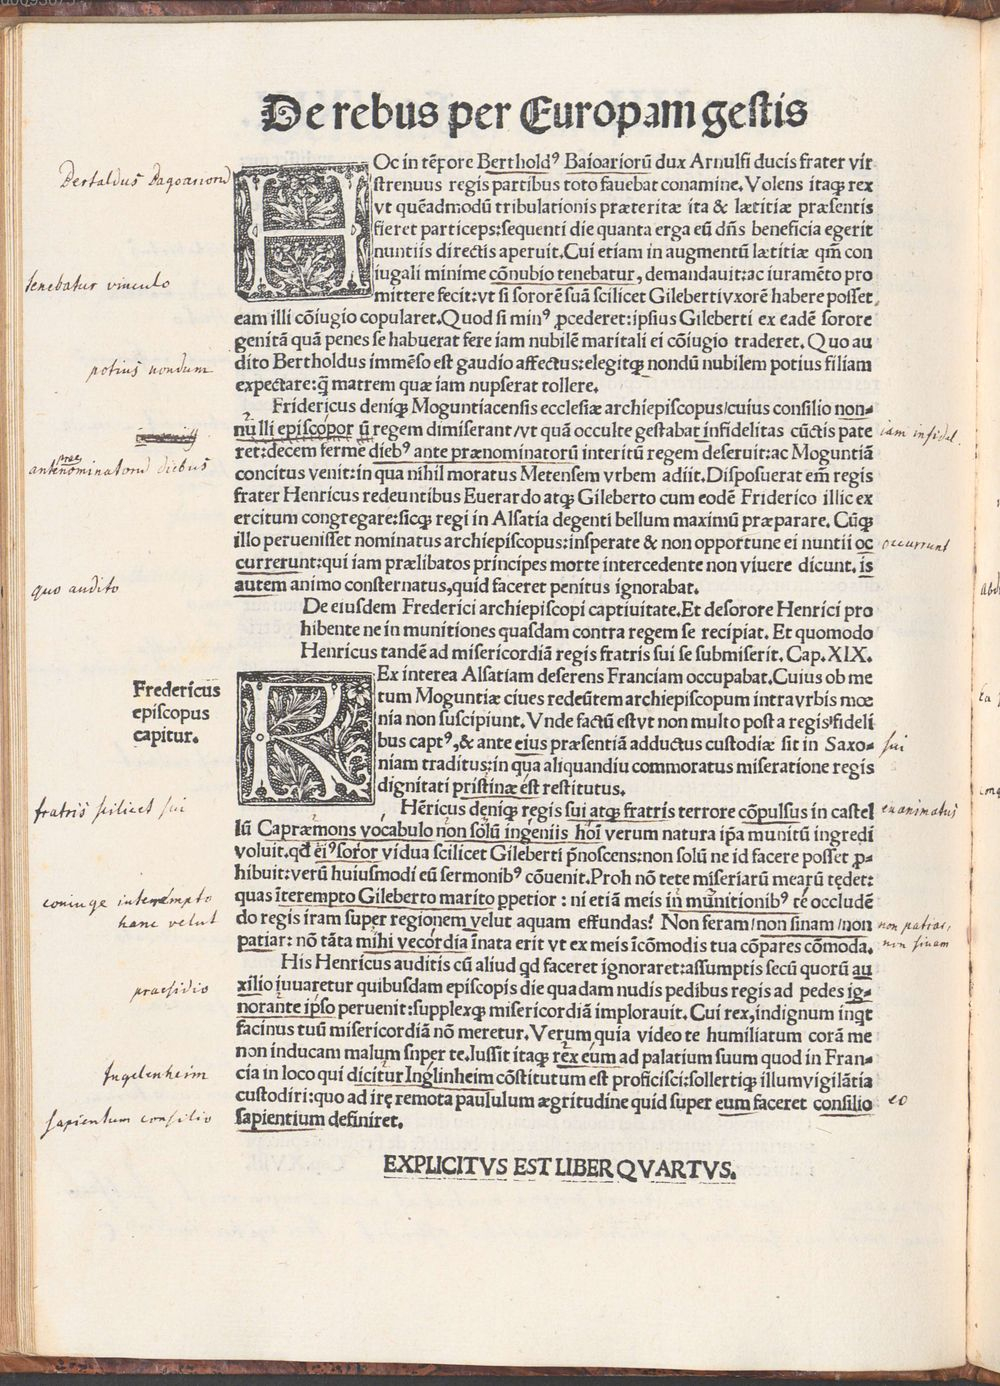 De rebus per Europam gestis
Oc in tēpore Bertholdꝰ Baioariorū dux Arnulfi ducis frater vir
Bertaldus Bagoariorū
ſtrenuus regis partibus toto fauebat conamine. Volens itaqꝫ rex
vt quēadmodū tribulationis præteritæ ita & lætitiæ præſentis
fieret particeps: ſequenti die quanta erga eū dñs beneficia egerit
nuntiis directis aperuit. Cui etiam in augmentū lætitiæ qm̄ con
iugali minime cōnubio tenebatur, demandauit: ac iuramēto pro
tenebatur vinculo
mittere fecit: vt ſi ſororē ſuā ſcilicet Gileberti vxorē habere poſſet,
eam illi cōiugio copularet. Quod ſi minꝰ ꝓcederet: ipſius Gileberti ex eadē ſorore
genitā quā penes ſe habuerat fere iam nubilē maritali ei cōiugio traderet. Quo au
dito Bertholdus immēſo eſt gaudio affectus: elegitqꝫ nondū nubilem potius filiam
potius nondum
expectare: q̄ matrem quæ iam nupſerat tollere.
Fridericus deniqꝫ Moguntiacenſis eccleſiæ archiepiſcopus/cuius conſilio non-
nulli epiſcopor ū regem dimiſerant/vt quā occulte geſtabat infidelitas cūctis pate
iam infidel.
ret: decem ferme diebꝰ ante prænominatorū interitū regem deſeruit: ac Moguntiā
antenominatorū diebus
prae
concitus venit: in qua nihil moratus Metensem vrbem adiit. Diſpoſuerat em̄ regis
frater Henricus redeuntibus Euerardo atqꝫ Gileberto cum eodē Friderico illic ex
ercitum congregare: ſicqꝫ regi in Alſatia degenti bellum maximū præparare. Cūqꝫ
illo perueniſſet nominatus archiepiſcopus: inſperate & non opportune ei nuntii oc
occurrunt
currerunt: qui iam prælibatos principes morte intercedente non viuere dicunt. is
autem animo conſternatus, quid faceret penitus ignorabat.
quo audito
De eiuſdem Frederici archiepiſcopi captiuitate. Et de sorore Henrici pro
hibente ne in munitiones quaſdam contra regem ſe recipiat. Et quomodo
Henricus tandē ad miſericordiā regis fratris ſui ſe ſubmiſerit. Cap. XIX.
Ex interea Alſatiam deſerens Franciam occupabat. Cuius ob me
Fredericus
epiſcopus
capitur.
tum Moguntiæ ciues redeūtem archiepiſcopum intra vrbis mœ
nia non ſuſcipiunt. Vnde factū eſt vt non multo poſt a regis fideli
bus captꝰ, & ante eius præſentiā adductus cuſtodiæ ſit in Saxo-
ſui
niam traditus: in qua aliquandiu commoratus miſeratione regis
dignitati priſtinæ eſt reſtitutus.
Hēricus deniqꝫ regis ſui atqꝫ fratris terrore cōpulſus in caſtel
fratris ſcilicet ſui
exanimatus
lū Capræmons vocabulo non ſolū ingeniis hoīi verum natura ip̄a munitū ingredi
voluit. qđ eiꝰ ſoror vidua ſcilicet Gileberti p̄noſcens: non ſolū ne id facere poſſet ꝓ-
hibuit: verū huiuſmodi eū ſermonibꝰ cōuenit. Proh nō tete miſeriarū mearū tędet:
quas īterempto Gileberto marito ppetior : ni etiā meis in munitionibꝰ te occludē
coniuge interempto
hanc velut
do regis iram ſuper regionem velut aquam effundas? Non feram/non ſinam/non
non patiar,
non ſinam
patiar: nō tāta mihi vecordia īnata erit vt ex meis īcōmodis tua cōpares cōmoda.
His Henricus auditis cū aliud qđ faceret ignoraret: aſſumptis ſecū quorū au
xilio iuuaretur quibuſdam epiſcopis die quadam nudis pedibus regis ad pedes ig-
praeſidio
norante ipſo peruenit: ſupplexqꝫ miſericordiā implorauit. Cui rex, indignum inqt
facinus tuū miſericordiā nō meretur. Verum quia video te humiliatum corā me
non inducam malum ſuper te. Iuſſit itaqꝫ rex eum ad palatium ſuum quod in Fran-
cia in loco qui dicitur Inglinheim cōſtitutum eſt proficiſci: ſollertiqꝫ illum vigilātia
Ingelenheim
cuſtodiri: quo ad irę remota paululum ægritudine quid ſuper eum faceret conſilio
eo
ſapientium definiret.
sapientum conſilio
EXPLICITVS EST LIBER QVARTVS.